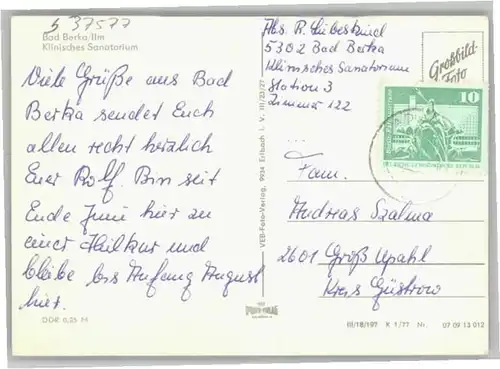 b 37577
Bad Berka/Ilm
Klinisches Sanatorium
Viele Grüße aus Bad
Berka sendet Euch
allen recht herzlich
Euer Rolf. Bin seit
Ende Juni hier zu
einer Heilkur und
bleibe bis Anfang August
hier.
DDR 0,25 M
VEB-Foto-Verlag, 9934 Erlbach i. V. III/23/27
Abs. R. Liebeskind
5302 Bad Berka
Klinisches Sanatorium
Station 3
Zimmer 122
Großbild-
Foto
10
Fam.
Andreas Szalma
2601 Groß Upahl
Kreis Güstrow
III/18/197 K 1/77 Nr. 07 09 13 012